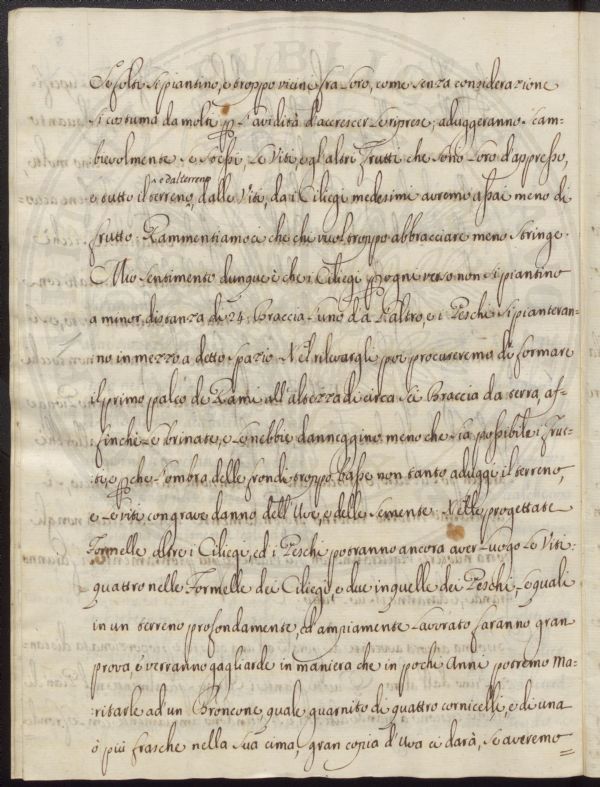 Se folti si piantino, e troppo vicini fra loro, come senza considerazione
si costuma da molti p l'avidità d'accrescer le riprese, aduggeranno scam-
bievolmente se stessi, le Viti, e gl'altri frutti che sono loro d'appresso,
e dal terreno
e tutto il terreno, dalle Viti, da i Ciliegi medesimi avremo assai meno di
frutto: Rammentiamoci che chi vuol troppo abbracciare meno stringe.
Mio sentimento dunque è che i Ciliegi p ogni verso non si piantino
a minor distanza di 24: Braccia l'uno da l'altro, e i Peschi si pianteran-
no in mezzo a detto spazio. Nel rilevargli poi procureremo di formare
il primo palco de Rami all'altezza di circa sei Braccia da terra, af-
finchè le brinate, e le nebbie danneggino meno che sia possibile i frut-
ti, e p che l'ombra delle frondi troppo basse non tanto adugge il terreno,
e le viti con grave danno dell'Uve, e delle semente. Nelle progettate
Formelle oltre i Ciliegi, ed i Peschi potranno ancora aver luogo le Viti:
quattro nelle Formelle dei Ciliegi, e due in quelle dei Peschi, le quali
in un terreno profondamente, ed ampiamente lavorato faranno gran
prova e verranno gagliarde in maniera che in pochi Anni potremo ma-
ritarle ad un Broncone, quale guarnito di quattro cornicelli, e di una
ò più frasche nella sua cima, gran copia d'Uva ci darà, se averemo